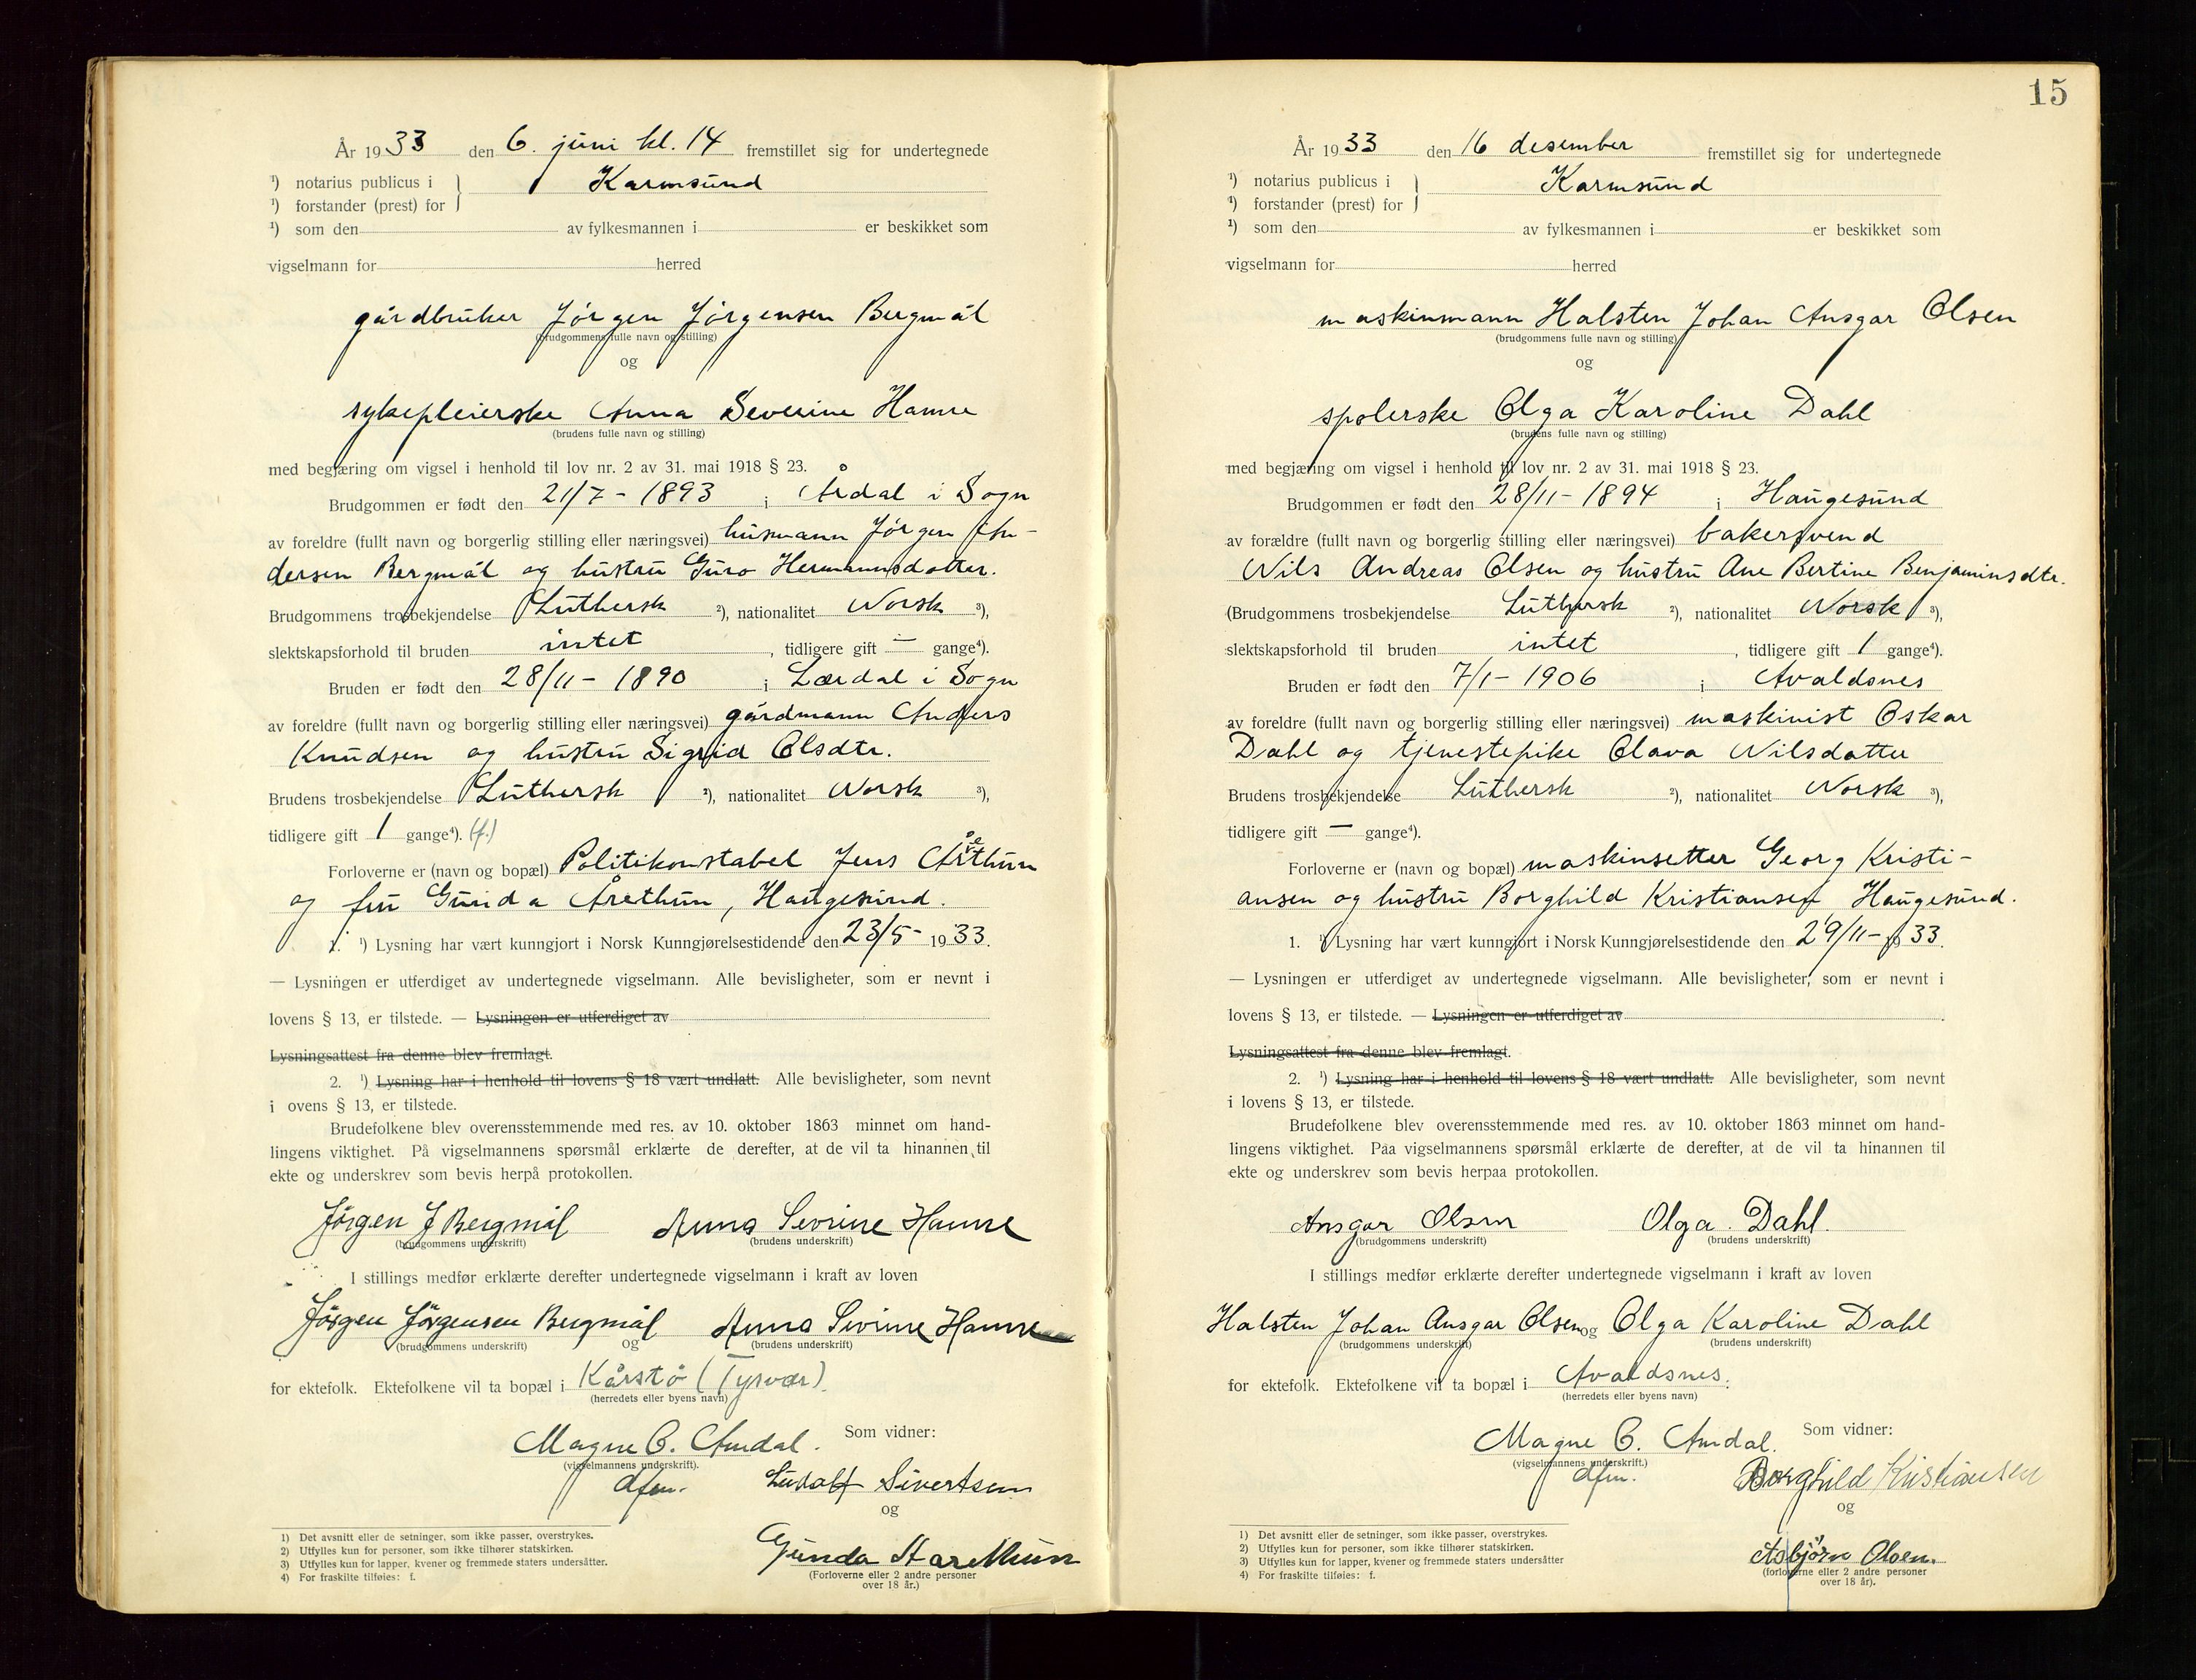 År 1933 den 6. juni kl. 14 fremstillet sig for undertegnede
¹) notarius publicus i } Karmsund
¹) forstander (prest) for
¹) som den av fylkesmannen i er beskikket som
vigselmann for herred
gårdbruker Jörgen Jörgensen Bergmål
(brudgommens fulle navn og stilling)
og
sykepleierske Anna Severine Hamre
(brudens fulle navn og stilling)
med begjæring om vigsel i henhold til lov nr. 2 av 31. mai 1918 § 23.
Brudgommen er født den 21/7 - 1893 i Årdal i Sogn
av foreldre (fullt navn og borgerlig stilling eller næringsvei) husmann Jörgen An-
dersen Bergmål og hustru Guro Hermannsdotter.
Brudgommens trosbekjendelse Luthersk ²), nationalitet Norsk ³),
slektskapsforhold til bruden intet, tidligere gift — gange⁴).
Bruden er født den 28/11 - 1890 i Lærdal i Sogn
av foreldre (fullt navn og borgerlig stilling eller næringsvei) gårdmann Anders
Knudsen og hustru Sigrid Olsdtr.
Brudens trosbekjendelse Luthersk ²), nationalitet Norsk ³),
tidligere gift 1 gange⁴). (f.)
Forloverne er (navn og bopæl) Politikonstabel Jens Årethun
og fru Gunda Årethun, Haugesund.
1. ¹) Lysning har vært kunngjort i Norsk Kunngjørelsestidende den 23/5 - 1933.
— Lysningen er utferdiget av undertegnede vigselmann. Alle bevisligheter, som er nevnt i
lovens § 13, er tilstede. — Lysningen er utferdiget av
Lysningsattest fra denne blev fremlagt.
2. ¹) Lysning har i henhold til lovens § 18 vært undlatt. Alle bevisligheter, som nevnt
i ovens § 13, er tilstede.
Brudefolkene blev overensstemmende med res. av 10. oktober 1863 minnet om hand-
lingens viktighet. På vigselmannens spørsmål erklærte de derefter, at de vil ta hinannen til
ekte og underskrev som bevis herpå protokollen.
Jörgen J Bergmål Anna Sevrine Hamre
(brudgommens underskrift) (brudens underskrift)
I stillings medfør erklærte derefter undertegnede vigselmann i kraft av loven
Jörgen Jörgensen Bergmål og Anna Sivrine Hamre
(brudgommens underskrift) (brudens underskrift)
for ektefolk. Ektefolkene vil ta bopæl i Kårstø (Tysvær).
(herredets eller byens navn)
Magne C. Amdal. Som vidner:
(vigselmannens underskrift).
dfm. Ludolf Sivertsen
og
Gunda Aarethun
(Forloverne eller 2 andre personer
over 18 år.)
1) Det avsnitt eller de setninger, som ikke passer, overstrykes.
2) Utfylles kun for personer, som ikke tilhører statskirken.
3) Utfylles kun for lapper, kvener og fremmede staters undersåtter.
4) For fraskilte tilføies: f.
15
År 1933 den 16 desember fremstillet sig for undertegnede
¹) notarius publicus i } Karmsund
¹) forstander (prest) for
¹) som den av fylkesmannen i er beskikket som
vigselmann for herred
maskinmann Halsten Johan Ansgar Olsen
(brudgommens fulle navn og stilling)
og
spolerske Olga Karoline Dahl
(brudens fulle navn og stilling)
med begjæring om vigsel i henhold til lov nr. 2 av 31. mai 1918 § 23.
Brudgommen er født den 28/11 - 1894 i Haugesund
av forældre (fullt navn og borgerlig stilling eller næringsvei) bakersvend
Nils Andreas Olsen og hustru Ane Bertine Benjaminsdtr.
(Brudgommens trosbekjendelse Luthersk ²), nationalitet Norsk ³),
slektskapsforhold til bruden intet, tidligere gift 1 gange⁴).
Bruden er født den 7/1 - 1906 i Avaldsnes
av foreldre (fullt navn og borgerlig stilling eller næringsvei) maskinist Oskar
Dahl og tjenestepike Olava Nilsdatter
Brudens trosbekjendelse Luthersk ²), nationalitet Norsk ³),
tidligere gift — gange⁴).
Forloverne er (navn og bopæl) maskinsetter Georg Kristi-
ansen og hustru Borghild Kristiansen Haugesund.
1. ¹) Lysning har vært kunngjort i Norsk Kunngjørelsestidende den 29/11 - 1933.
— Lysningen er utferdiget av undertegnede vigselmann. Alle bevisligheter, som er nevnt i
lovens § 13, er tilstede. — Lysningen er utferdiget av .
Lysningsattest fra denne blev fremlagt.
2. ¹) Lysning har i henhold til lovens § 18 vært undlatt. Alle bevisligheter, som nevnt
i lovens § 13, er tilstede.
Brudefolkene blev overensstemmende med res. av 10. oktober 1863 minnet om hand-
lingens viktighet. Paa vigselmannens spørsmål erklærte de derefter, at de vil ta hinannen til
ekte og underskrev som bevis herpaa protokollen.
Ansgar Olsen Olga. Dahl.
(brudgommens underskrift) (brudens underskrift)
I stillings medfør erklærte derefter undertegnede vigselmann i kraft av loven
Halsten Johan Ansgar Olsen og Olga Karoline Dahl
(brudgommens underskrift) (brudens underskrift)
for ektefolk. Ektefolkene vil ta bopæl i Avaldsnes.
(herredets eller byens navn)
Magne C. Amdal. Som vidner:
(vigselmannens underskrift.)
dfm. Borghild Kristiansen
og
Asbjörn Olsen.
(forloverne eller 2 andre personer
over 18 år).
1) Det avsnitt eller de setninger, som ikke passer, overstrykes.
2) Utfylles kun for personer, som ikke tilhører statskirken.
3) Utfylles kun for lapper, kvener og fremmede staters undersåtter
4) For fraskilte tilføies: f.